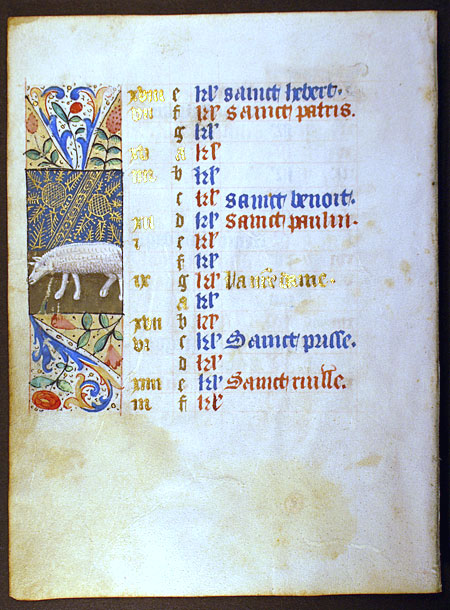 xviii e kl sanct hebert.
vii f kl Sanct patris.
g kl
xv a kl
iiii b kl
c kl sanct benoit.
xii d kl Sanct paulin.
i e kl
f kl
ix g kl La nre dame.
a kl
xvii b kl
vi c kl Sanct prisse.
d kl
xiiii e kl Sanct
iii f kl